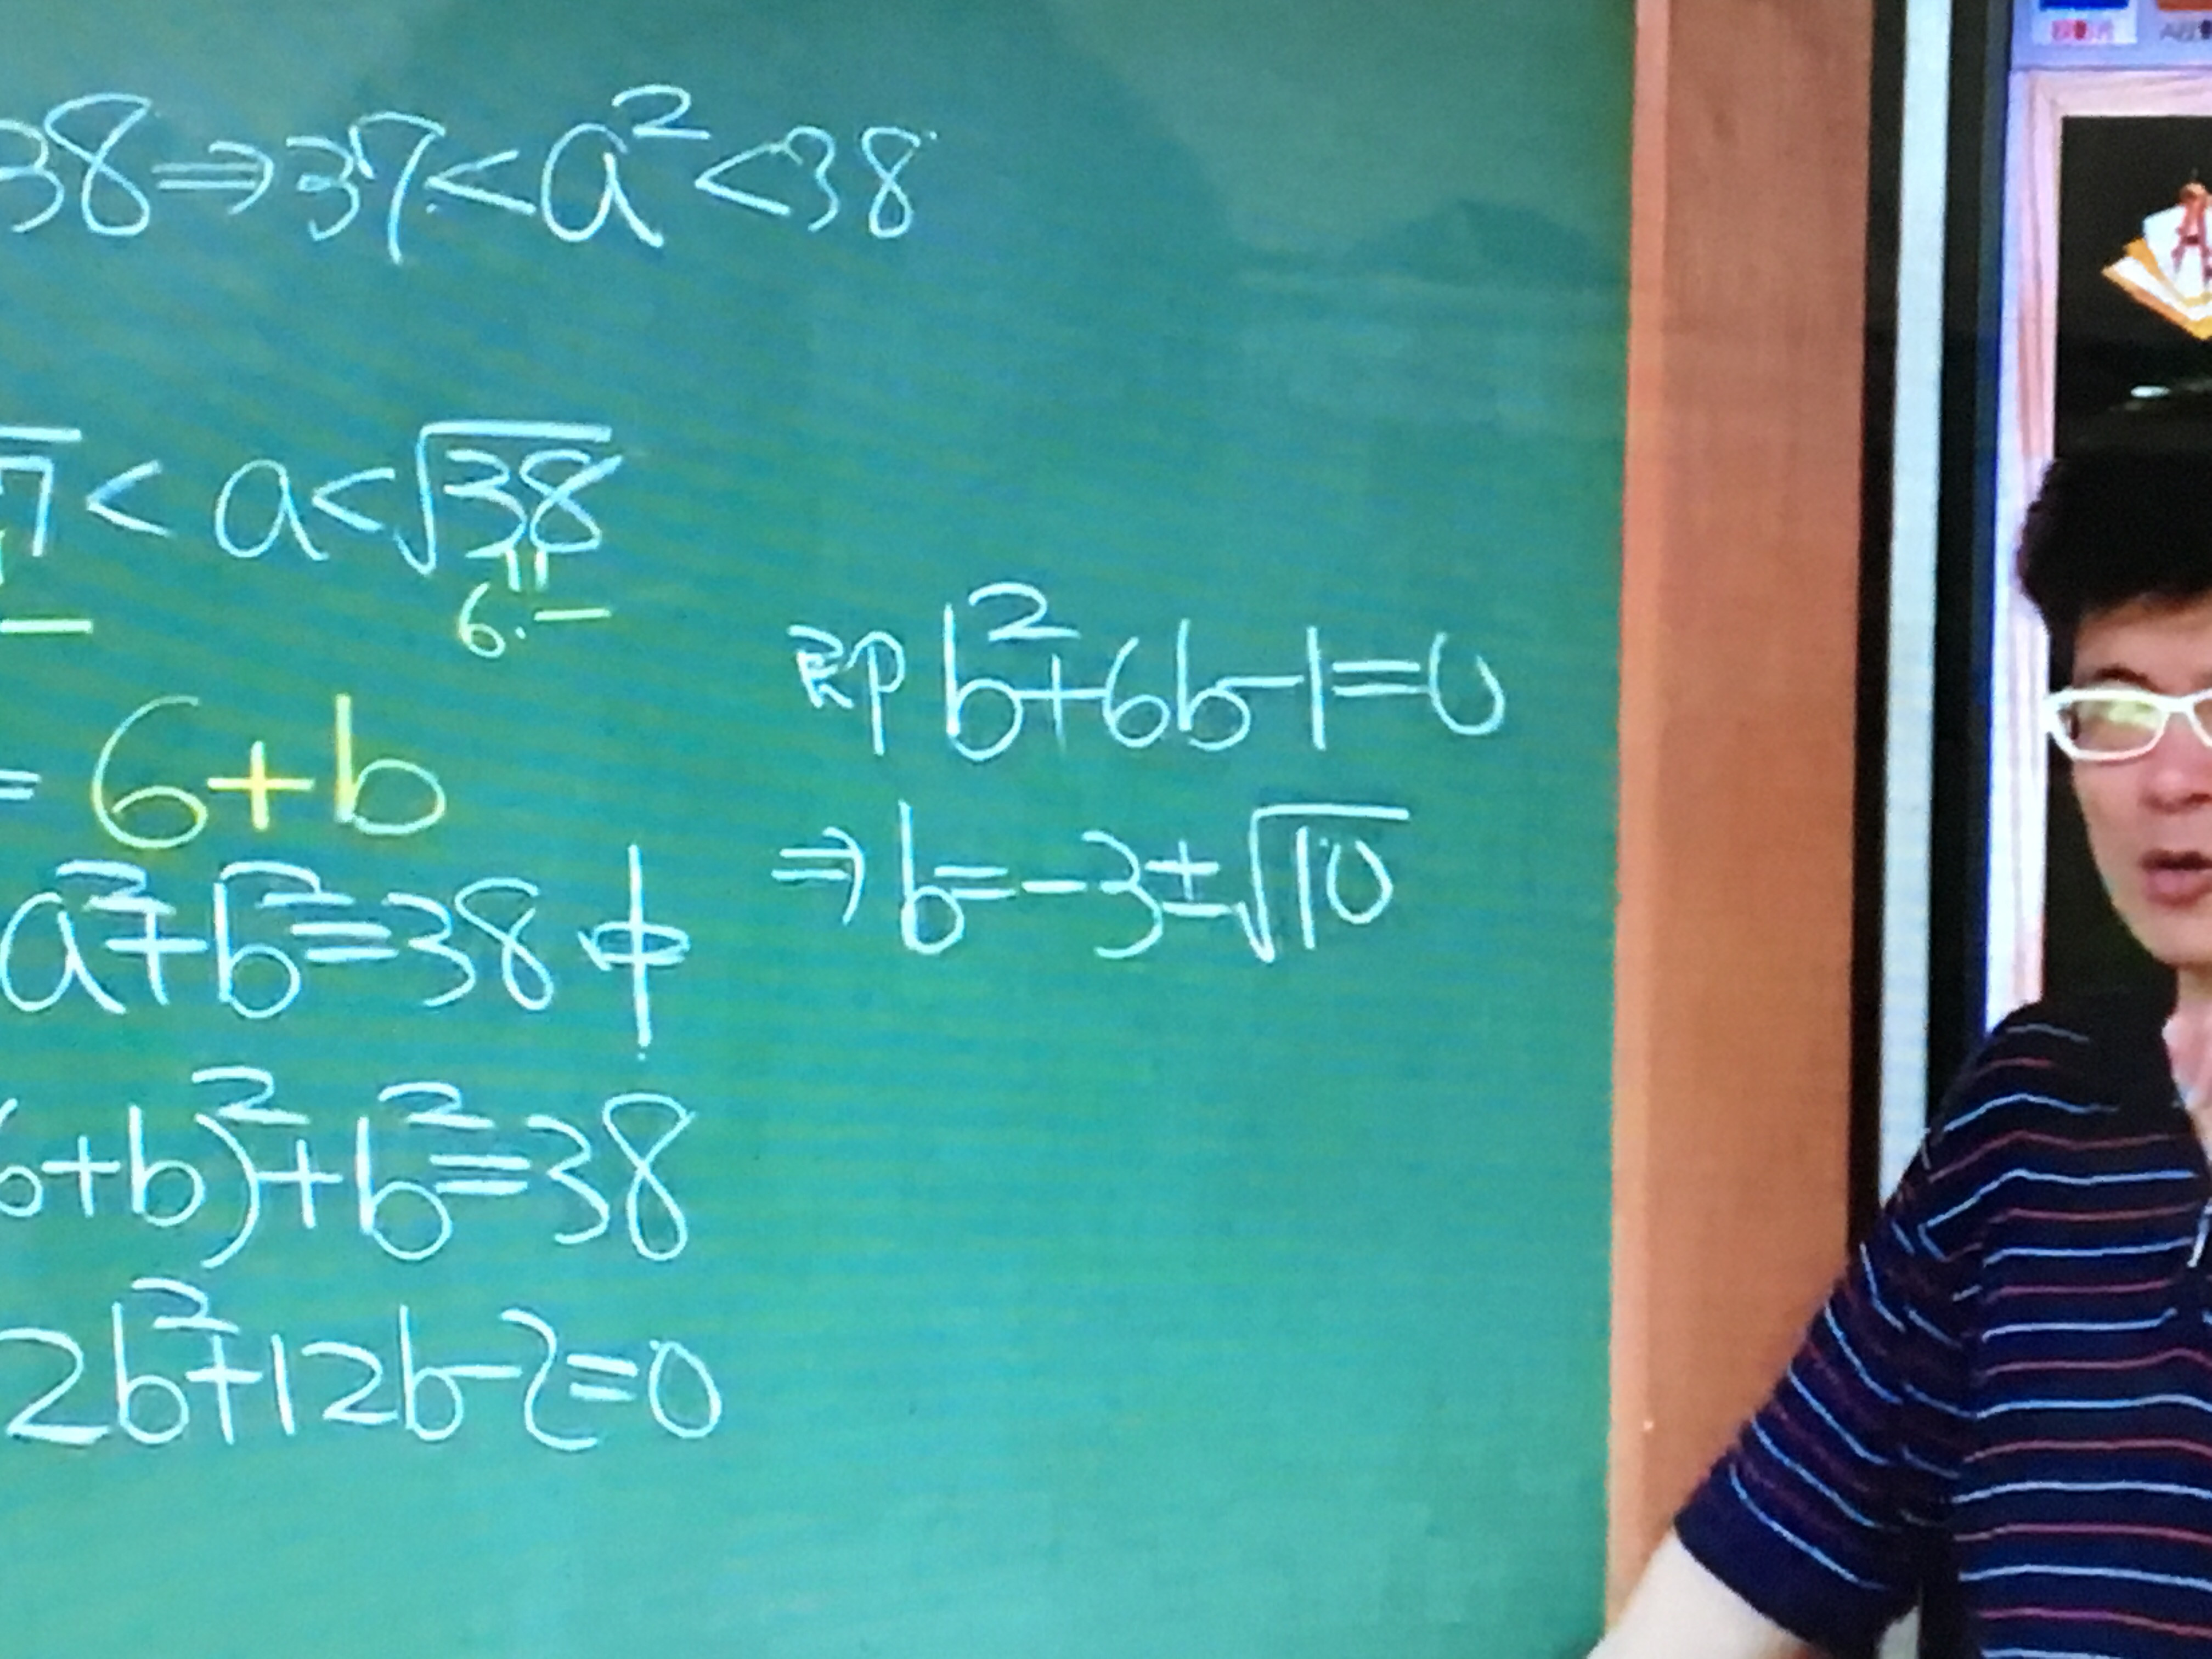 38⇒37<a²<38
7<a<√38
6.—
=6+b
a²+b²=38中
6+b)²+b²=38
2b²+12b-2=0
即b²+6b-1=0
⇒b=-3±√10
A